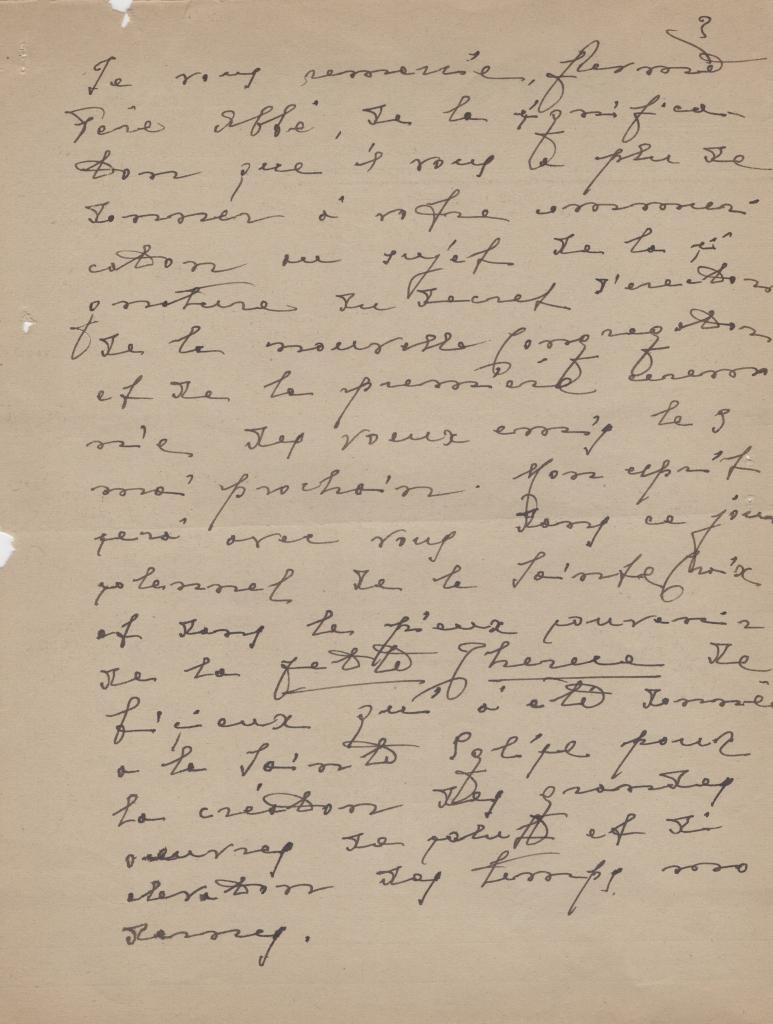 ?
Je vous remercie,
Père Abbé, de la significa-
tion que il vous a plu de
donner à votre communi
cation au sujet de la si
gnature du decret d'erection
de la nouvelle Congregation
et de la première ceremo
nie des voeux emis le 3
mai prochain. Mon esprit
sera avec vous dans ce jour
solennel de la Sainte Croix
et dans le pieux souvenir
de la petite Therese de
Lisieux qui a eté donnée
a la Sainte Eglise pour
la création des grandes
oeuvres de salut et d'
elevation des temps mo
dernes.